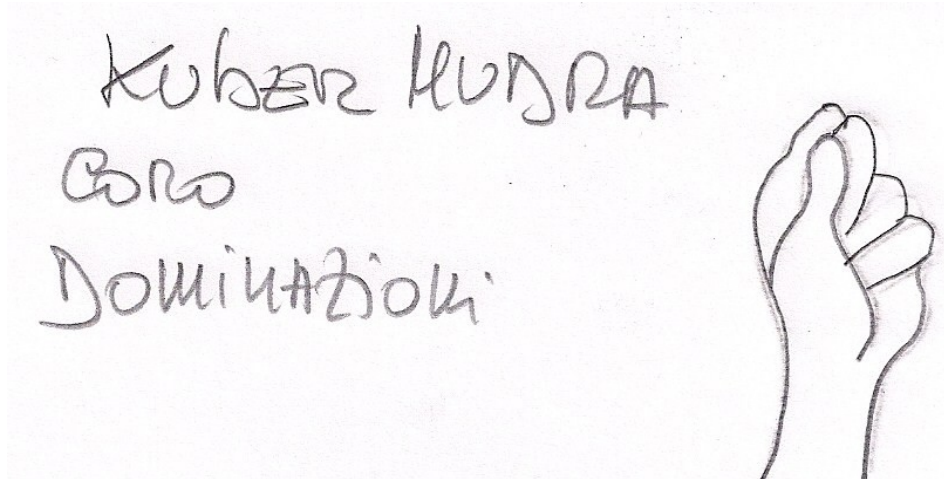 KUBER MUDRA
CORO
DOMINAZIONI